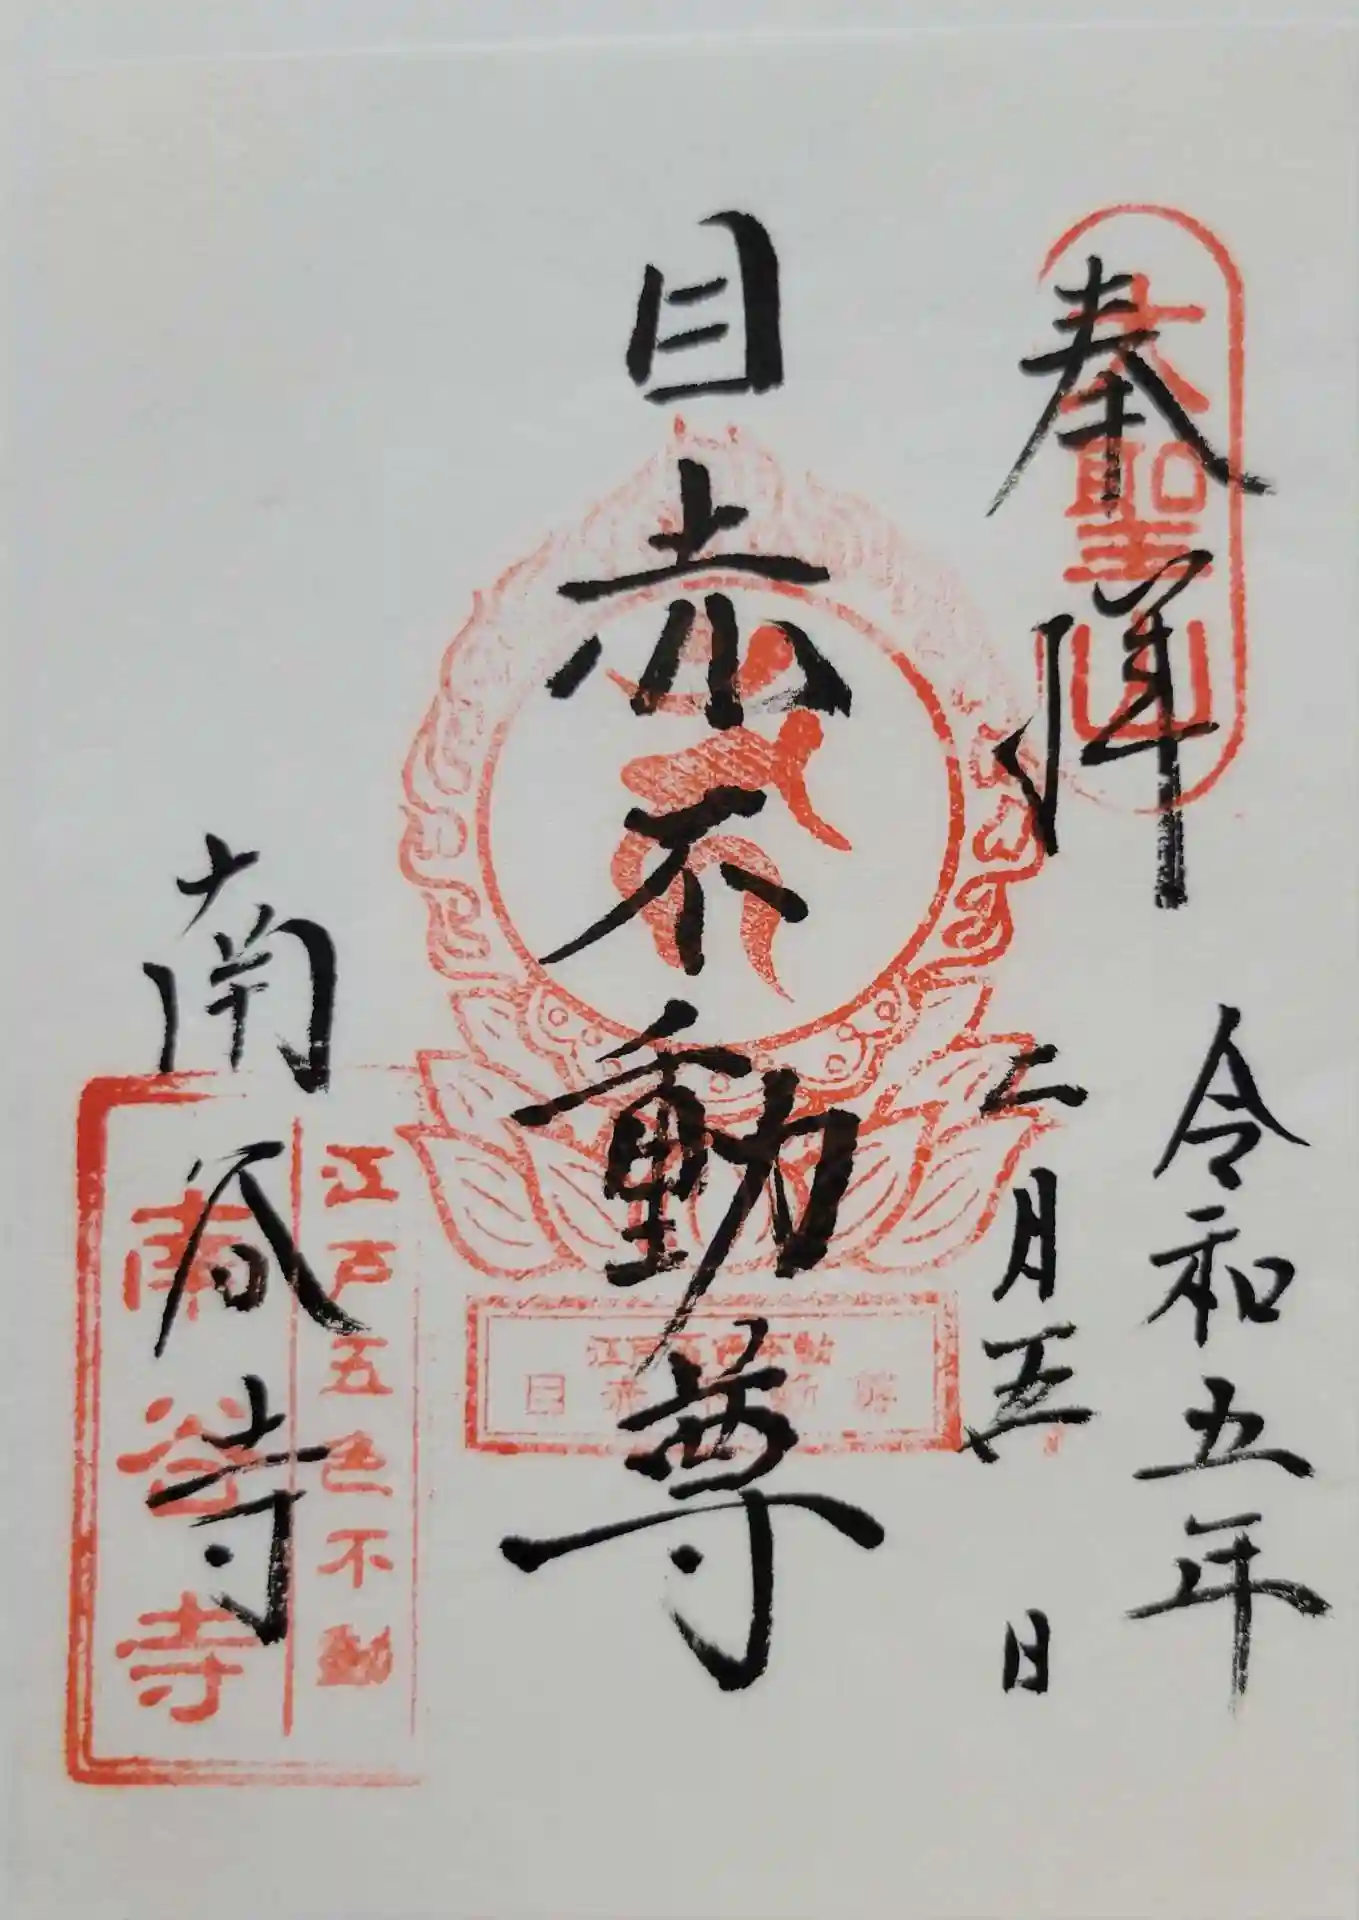 奉拝
大聖山
令和五年
二月五日
目赤不動尊
江戸五色不動
目赤不動尊
南谷寺
江戸五色不動
南谷寺